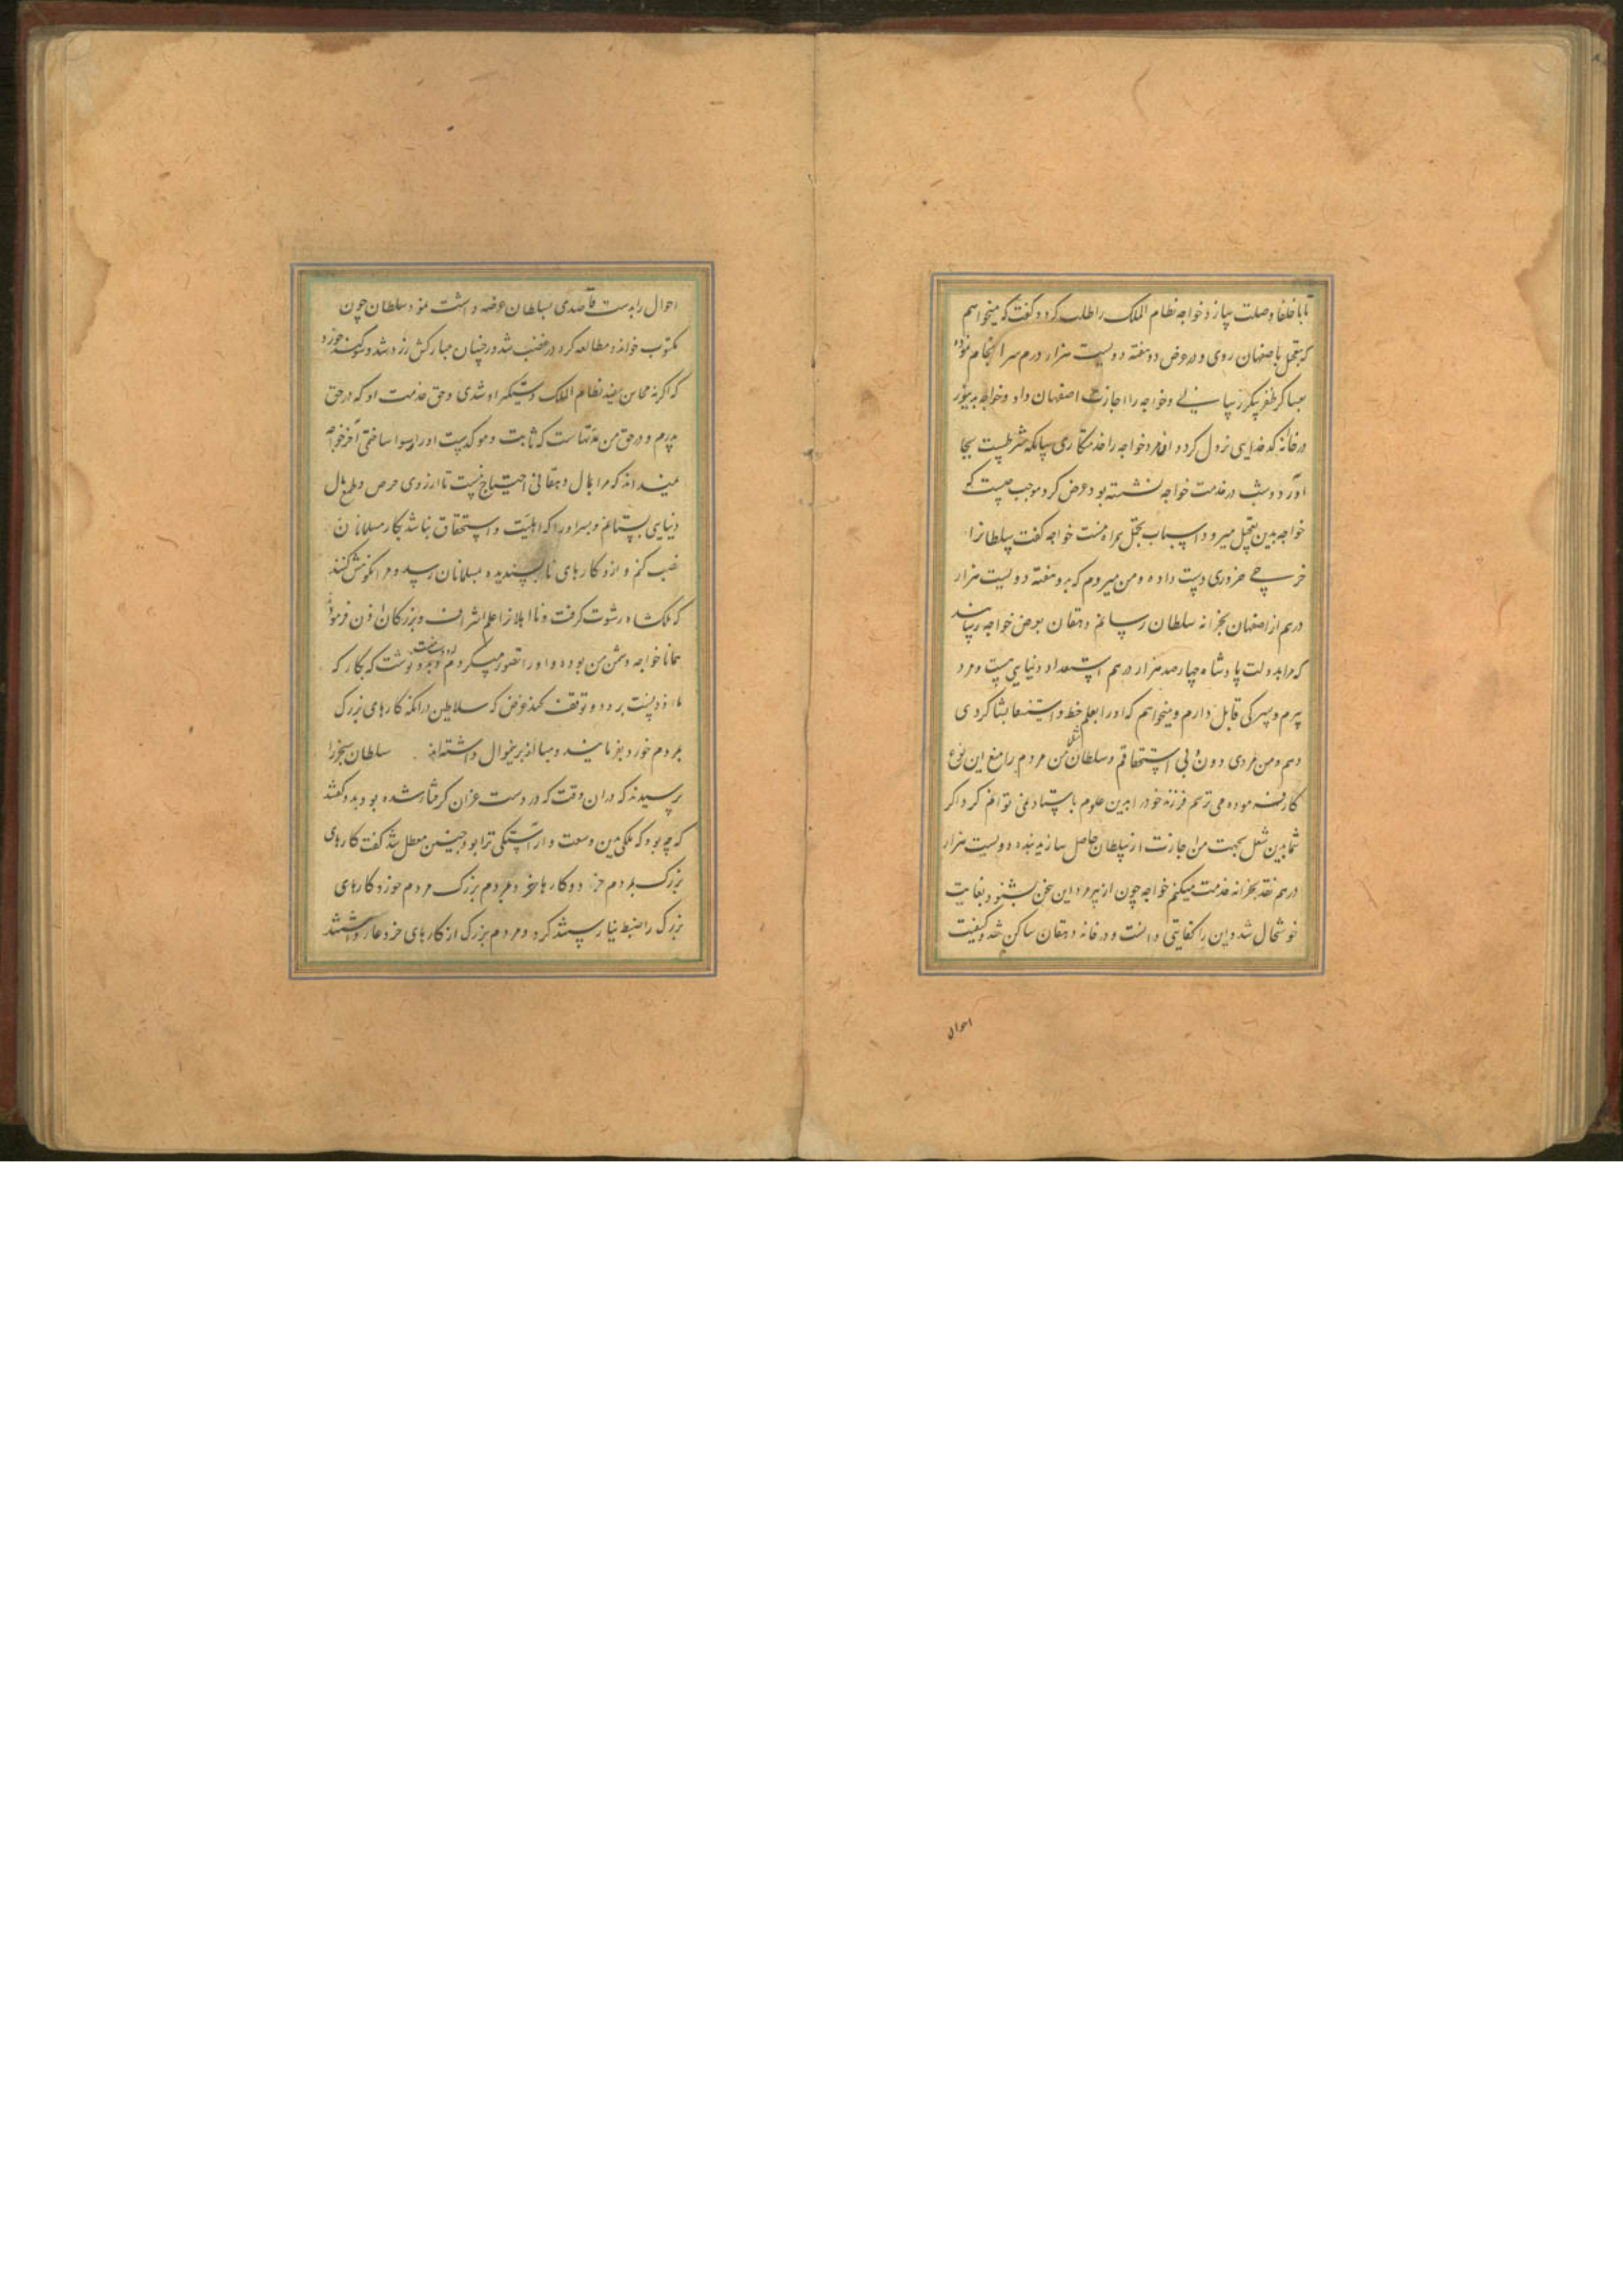 تا با خلفا وصلت سازد خواجه نظام الملک را طلب کرد و گفت که میخواهم
که بتعجیل باصفهان روی و در عرض دو هفته دویست هزار درم سرانجام نموده
بعساکر ظفر پیکر رسانی و خواجه را اجازت اصفهان داد و خواجه
در خانه کدخدایی نزول کرد و خواجه را خدمتکاری چنانکه شرطست بجا
آورد و شب در خدمت خواجه نشسته بود عرض کرد موجب چیست که
خواجه بدین تعجیل میرود و اسباب تجمل همراه نیست خواجه گفت سلطانرا
خرجی ضروری دست داده و من میروم که بدو هفته دویست هزار
درهم از اصفهان بخزانه سلطان رسانم دهقان بعرض خواجه رسانید
که مرا بدولت پادشاه چهارصد هزار درهم استعداد دنیایی هست و مرد
پیرم و پسرکی قابل دارم و میخواهم که او را بعلم خط و استیفا بشاکردی
دهم و من مردی دون و بی استحقاقم و سلطان من مردم را منع این نوع
کار فرموده می ترسم فرزند خود را بدین علوم باستاد نمی توانم کرد اگر
شما بدین شغل بجهت من اجازت از سلطان حاصل سازید بنده دویست هزار
درهم نقد بخزانه خدمت میکنم خواجه چون از پیر مرد این سخن بشنود بغایت
خوشحال شد و این را کفایتی دانست و در خانه دهقان ساکن شد و کیفیت
احوال
احوال را بدست قاصدی بسلطان عرضه داشت نمود سلطان چون
مکتوب خواند و مطالعه کرد در غضب شد و رخسار مبارکش زرد شد و سوگند خورد
که اگر نه محاسن سفید نظام الملک دستگیر او شدی و حق خدمت او که در حق
پدرم و در حق من مدتهاست که ثابت و موکدست او را رسوا ساختی آخر خواجه
نمیداند که مرا بمال دهقانی احتیاج نیست تا از روی حرص و طمع مال
دنیایی بستانم و پسر او را که اهلیت و استحقاق نباشد بکار مسلمانان
نصب کنم و ازو کارهای ناپسندیده بمسلمانان رسد و مرا نکوهش کنند
که ملکشاه رشوت گرفت و نااهلانرا علم اشراف و بزرگان اذن فرمود
همانا خواجه دشمن من بوده و او را تصور میکردم دوست و بدو نوشت که بکار که
مازد پست برود و توقف نکند غرض که سلاطین در آنکه کارهای بزرگ
بمردم خورد نفرمایند و مبالغه برینموال داشته‌اند سلطان سنجر را
پرسیدند که در آن وقت که در دست غزان گرفتار شده بود بدو گفتند
که چه بود که ملکی بدین وسعت و آراستگی ترا بود چنین معطل شد گفت کارهای
بزرگ بمردم خرد و کارها خرد بمردم بزرگ مردم خورد کارهای
بزرگ را ضبط نیارستند کرد و مردم بزرگ از کارهای خرد عار داشتند